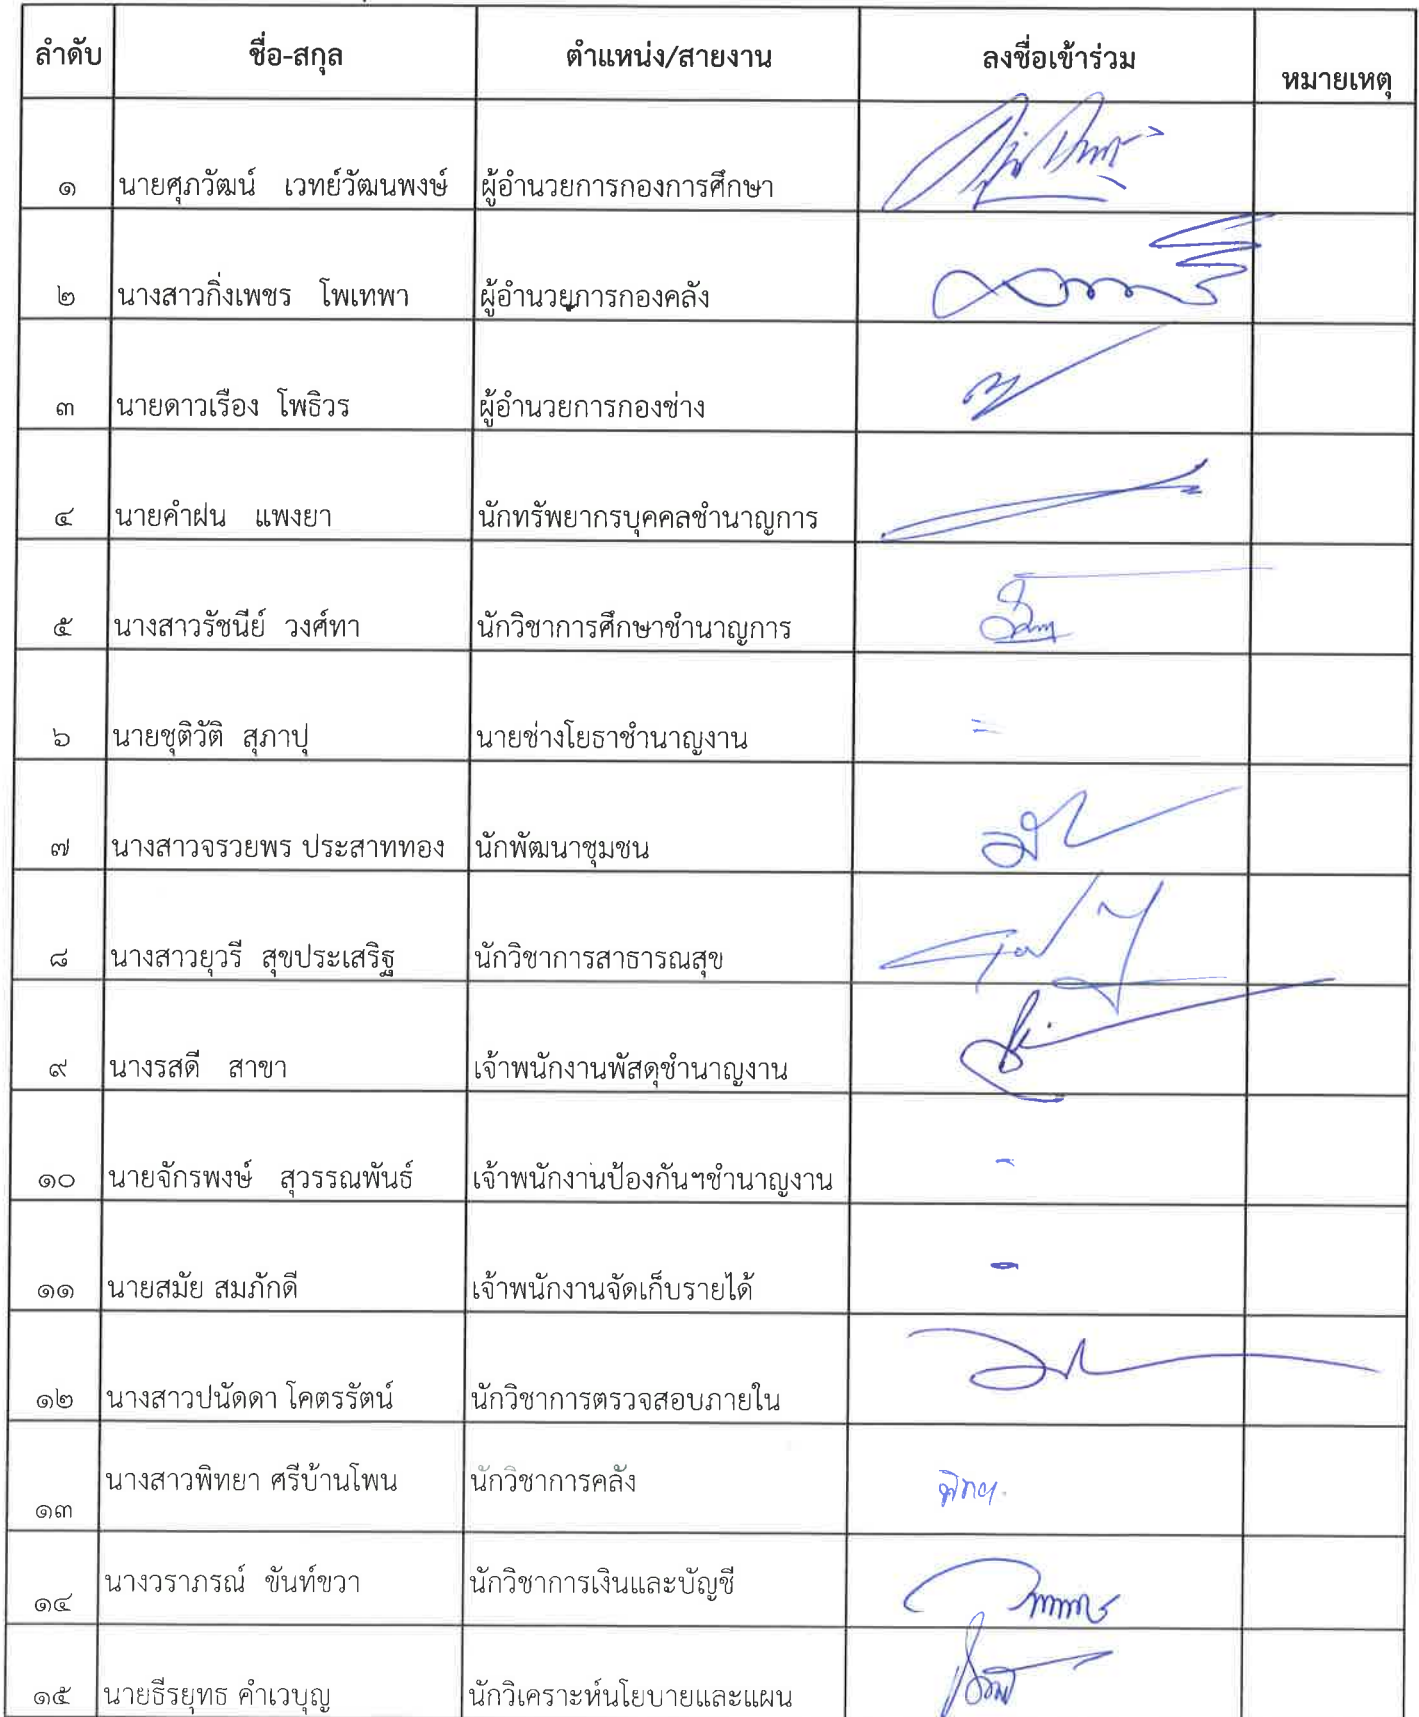 ลำดับ ชื่อ-สกุล ตำแหน่ง/สายงาน ลงชื่อเข้าร่วม หมายเหตุ
๑ นายศุภวัฒน์ เวทย์วัฒนพงษ์ ผู้อำนวยการกองการศึกษา
๒ นางสาวกิ่งเพชร โพเทพา ผู้อำนวยการกองคลัง
๓ นายดาวเรือง โพธิวร ผู้อำนวยการกองช่าง
๔ นายคำฝน แพงยา นักทรัพยากรบุคคลชำนาญการ
๕ นางสาวรัชนีย์ วงศ์ทา นักวิชาการศึกษาชำนาญการ
๖ นายชุติวัติ สุภาปุ นายช่างโยธาชำนาญงาน
๗ นางสาวจรวยพร ประสาททอง นักพัฒนาชุมชน
๘ นางสาวยุวรี สุขประเสริฐ นักวิชาการสาธารณสุข
๙ นางรสดี สาขา เจ้าพนักงานพัสดุชำนาญงาน
๑๐ นายจักรพงษ์ สุวรรณพันธ์ เจ้าพนักงานป้องกันฯชำนาญงาน -
๑๑ นายสมัย สมภักดี เจ้าพนักงานจัดเก็บรายได้ -
๑๒ นางสาวปนัดดา โคตรรัตน์ นักวิชาการตรวจสอบภายใน
๑๓ นางสาวพิทยา ศรีบ้านโพน นักวิชาการคลัง พิทยา
๑๔ นางวราภรณ์ ขันท์ขวา นักวิชาการเงินและบัญชี
๑๕ นายธีรยุทธ คำเวบุญ นักวิเคราะห์นโยบายและแผน